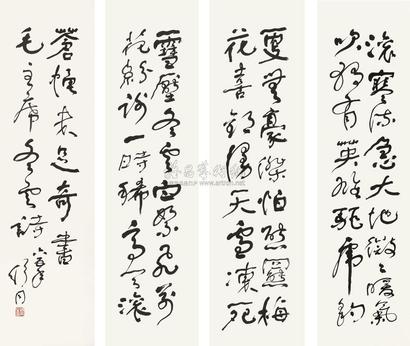 雪壓冬雲白絮飛萬
花紛謝一時稀高天滾
滾寒流急大地微々暖氣
吹獨有英雄驅虎豹
更無豪傑怕熊羆梅
花喜歡漫天雪凍死
蒼蠅未足奇書
毛主席冬雲詩
舒同